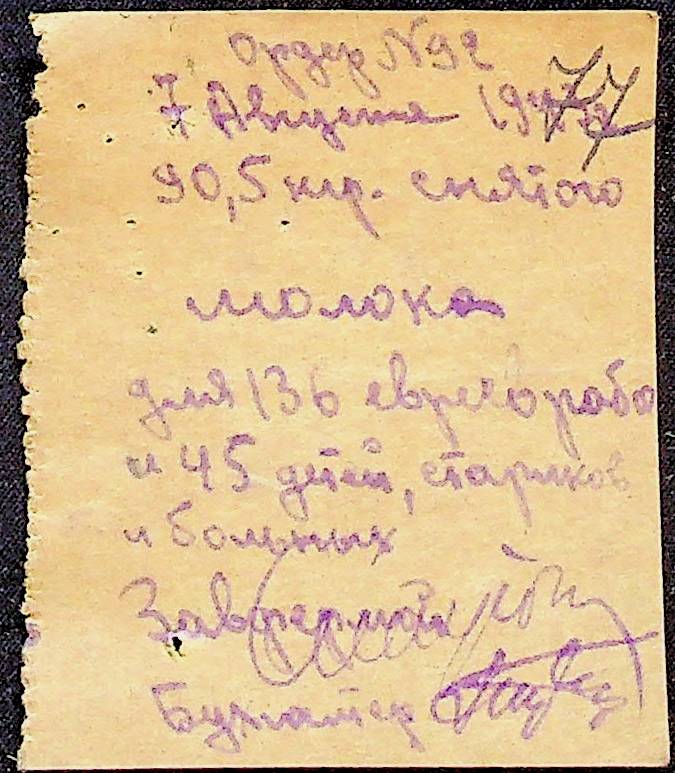 Ордер N92
7 Августа 194
77
90,5 кгр. снятого
молока
для 136 евреев рабо
и 45 детей, стариков
и больных
Завфермой
Бухгалтер